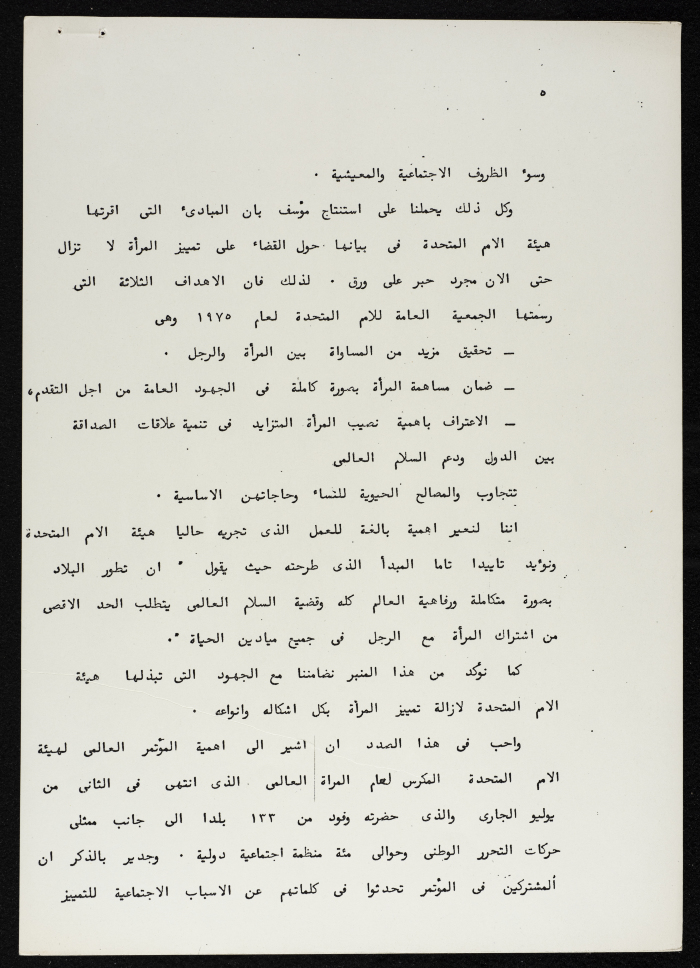 ٥
وسوء الظروف الاجتماعية والمعيشية .
وكل ذلك يحملنا على استنتاج مؤسف بان المبادىء التى اقرتها
هيئة الامم المتحدة فى بيانها حول القضاء على تمييز المرأة لا تزال
حتى الان مجرد حبر على ورق . لذلك فان الاهداف الثلاثة التى
رسمتها الجمعية العامة للامم المتحدة لعام ١٩٧٥ وهى
ـ تحقيق مزيد من المساواة بين المرأة والرجل .
ـ ضمان مساهمة المرأة بصورة كاملة فى الجهود العامة من اجل التقدم،
ـ الاعتراف باهمية نصيب المرأة المتزايد فى تنمية علاقات الصداقة
بين الدول ودعم السلام العالمى
تتجاوب والمصالح الحيوية للنساء وحاجاتهن الاساسية .
اننا لنعير اهمية بالغة للعمل الذى تجريه حاليا هيئة الامم المتحدة
ونؤيد تاييدا تاما المبدأ الذى طرحته حيث يقول " ان تطور البلاد
بصورة متكاملة ورفاهية العالم كله وقضية السلام العالمى يتطلب الحد الاقصى
من اشتراك المرأة مع الرجل فى جميع ميادين الحياة ".
كما نؤكد من هذا المنبر نضامننا مع الجهود التى تبذلها هيئة
الامم المتحدة لازالة تمييز المرأة بكل اشكاله وانواعه .
واحب فى هذا الصدد ان اشير الى اهمية المؤتمر العالمى لهيئة
الامم المتحدة المكرس لعام المراة العالمى الذى انتهى فى الثانى من
يوليو الجارى والذى حضرته وفود من ١٣٣ بلدا الى جانب ممثلى
حركات التحرر الوطنى وحوالى مئة منظمة اجتماعية دولية . وجدير بالذكر ان
المشتركين فى المؤتمر تحدثوا فى كلماتهم عن الاسباب الاجتماعية للتمييز